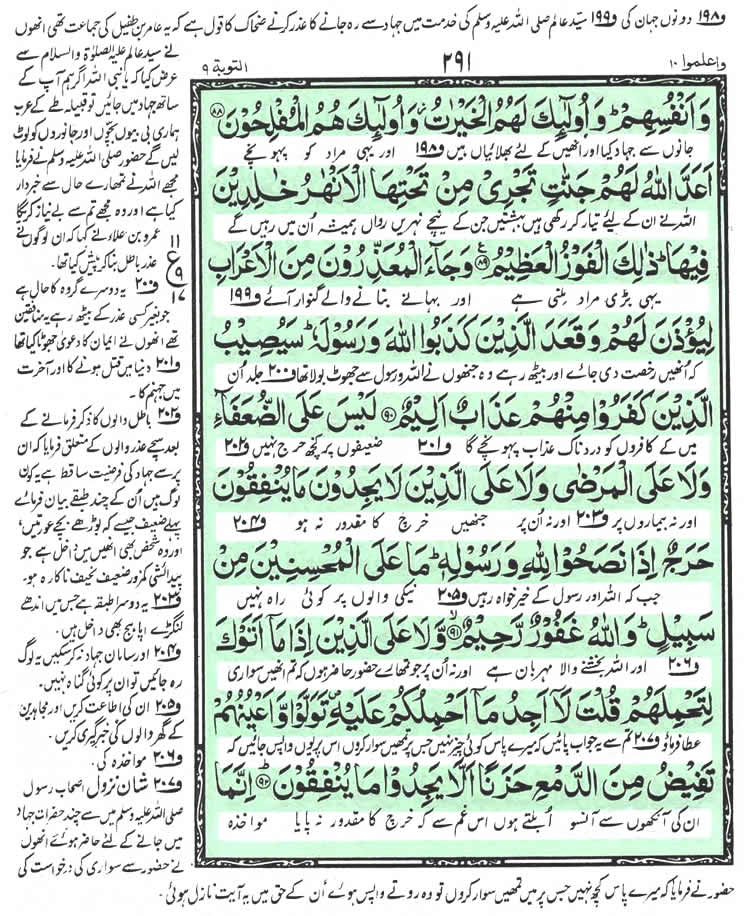 و۱۹۸ دونوں جہان کی و۱۹۹ سیّد عالم صلی اللہ علیہ وسلم کی خدمت میں جہاد سے رہ جانے کا عذر کرنے ضحاک کا قول ہے کہ یہ عامر بن طفیل کی جماعت تھی انھوں
واعلموا ۱۰
۲۹۱
التوبة ۹
وَاَنْفُسِهِمْ ؕ وَاُولٰٓئِكَ لَهُمُ الْخَيْرٰتُ ؗ وَاُولٰٓئِكَ هُمُ الْمُفْلِحُوْنَ ﴿۸۸﴾
جانوں سے جہاد کیا اور انھیں کے لئے بھلائیاں ہیں و۱۹۸ اور یہی مراد کو پہونچے
اَعَدَّ اللّٰهُ لَهُمْ جَنّٰتٍ تَجْرِيْ مِنْ تَحْتِهَا الْاَنْهٰرُ خٰلِدِيْنَ
اللہ نے ان کے لیئے تیار کر رکھی ہیں بہشتیں جن کے نیچے نہریں رواں ہمیشہ اُن میں رہیں گے
فِيْهَا ؕ ذٰلِكَ الْفَوْزُ الْعَظِيْمُ ﴿۸۹﴾ وَجَآءَ الْمُعَذِّرُوْنَ مِنَ الْاَعْرَابِ
یہی بڑی مراد ملنی ہے اور بہانے بنانے والے گنوار آئے و۱۹۹
لِيُؤْذَنَ لَهُمْ وَقَعَدَ الَّذِيْنَ كَذَبُوا اللّٰهَ وَرَسُوْلَهٗ ؕ سَيُصِيْبُ
کہ انھیں رخصت دی جائے اور بیٹھ رہے وہ جنھوں نے اللہ و رسول سے جھوٹ بولا تھا و۲۰۰ جلد اُن
الَّذِيْنَ كَفَرُوْا مِنْهُمْ عَذَابٌ اَلِيْمٌ ﴿۹۰﴾ لَيْسَ عَلَى الضُّعَفَآءِ
میں کے کافروں کو دردناک عذاب پہونچے گا و۲۰۱ ضعیفوں پر کچھ حرج نہیں و۲۰۲
وَلَا عَلَى الْمَرْضٰى وَلَا عَلَى الَّذِيْنَ لَا يَجِدُوْنَ مَا يُنْفِقُوْنَ
اور نہ بیماروں پر و۲۰۳ اور نہ اُن پر جنھیں خرچ کا مقدور نہ ہو و۲۰۴
حَرَجٌ اِذَا نَصَحُوْا لِلّٰهِ وَرَسُوْلِهٖ ؕ مَا عَلَى الْمُحْسِنِيْنَ مِنْ
جب کہ اللہ اور رسول کے خیر خواہ رہیں و۲۰۵ نیکی والوں پر کوئی راہ نہیں
سَبِيْلٍ ؕ وَاللّٰهُ غَفُوْرٌ رَّحِيْمٌ ﴿۹۱﴾ وَّلَا عَلَى الَّذِيْنَ اِذَا مَآ اَتَوْكَ
و۲۰۶ اور اللہ بخشنے والا مہربان ہے اور نہ اُن پر جو تمھارے حضور حاضر ہوں کہ تم انھیں سواری
لِتَحْمِلَهُمْ قُلْتَ لَآ اَجِدُ مَآ اَحْمِلُكُمْ عَلَيْهِ ۪ تَوَلَّوْا وَّاَعْيُنُهُمْ
عطا فرماؤ و۲۰۷ تم سے یہ جواب پائیں کہ میرے پاس کوئی چیز نہیں جس پر تمھیں سوار کروں اس پر یوں واپس جائیں کہ
تَفِيْضُ مِنَ الدَّمْعِ حَزَنًا اَلَّا يَجِدُوْا مَا يُنْفِقُوْنَ ﴿۹۲﴾ اِنَّمَا
ان کی آنکھوں سے آنسو اُبلتے ہوں اس غم سے کہ خرچ کا مقدور نہ پایا مواخذہ
نے سید عالم علیہ الصلوٰۃ والسلام سے
عرض کیا کہ یا نبی اللہ اگر ہم آپ کے
ساتھ جہاد میں جائیں تو قبیلہ طے کے عرب
ہماری بی بیوں بچوں اور جانوروں کو لوٹ
لیں گے حضور صلی اللہ علیہ وسلم نے فرمایا
مجھے اللہ نے تمھارے حال سے خبردار
کیا ہے اور وہ مجھے تم سے بے نیاز کریگا
عمرو بن علاء نے کہا کہ ان لوگوں نے
عذر باطل بنا کر پیش کیا تھا۔
۱۱
ع
۹
۱۷
و۲۰۰ یہ دوسرے گروہ کا حال ہے
جو بغیر کسی عذر کے بیٹھ رہے یہ منافقین
تھے انھوں نے ایمان کا دعوی جھوٹا کیا تھا
و۲۰۱ دنیا میں قتل ہونے کا اور آخرت
میں جہنم کا۔
و۲۰۲ باطل والوں کا ذکر فرمانے کے
بعد سچے عذر والوں کے متعلق فرمایا کہ ان
پر سے جہاد کی فرضیت ساقط ہے یہ کون
لوگ ہیں اُن کے چند طبقے بیان فرمائے
پہلے ضعیف جیسے کہ بوڑھے بچے عورتیں،
اور وہ شخص بھی انھیں میں داخل ہے جو
پیدائشی کمزور ضعیف نحیف ناکارہ ہو۔
و۲۰۳ یہ دوسرا طبقہ ہے جس میں اندھے
لنگڑے اپاہج بھی داخل ہیں۔
و۲۰۴ اور سامان جہاد نہ کر سکیں یہ لوگ
رہ جائیں تو ان پر کوئی گناہ نہیں۔
و۲۰۵ ان کی اطاعت کریں اور مجاہدین
کے گھر والوں کی خبرگیری کریں۔
و۲۰۶ مواخذہ کی۔
و۲۰۷ شان نزول اصحاب رسول
صلی اللہ علیہ وسلم میں سے چند حضرات جہاد
میں جانے کے لئے حاضر ہوئے انھوں
نے حضور سے سواری کی درخواست کی
حضور نے فرمایا کہ میرے پاس کچھ نہیں جس پر میں تمھیں سوار کروں تو وہ روتے واپس ہوئے اُن کے حق میں یہ آیت نازل ہوئی۔